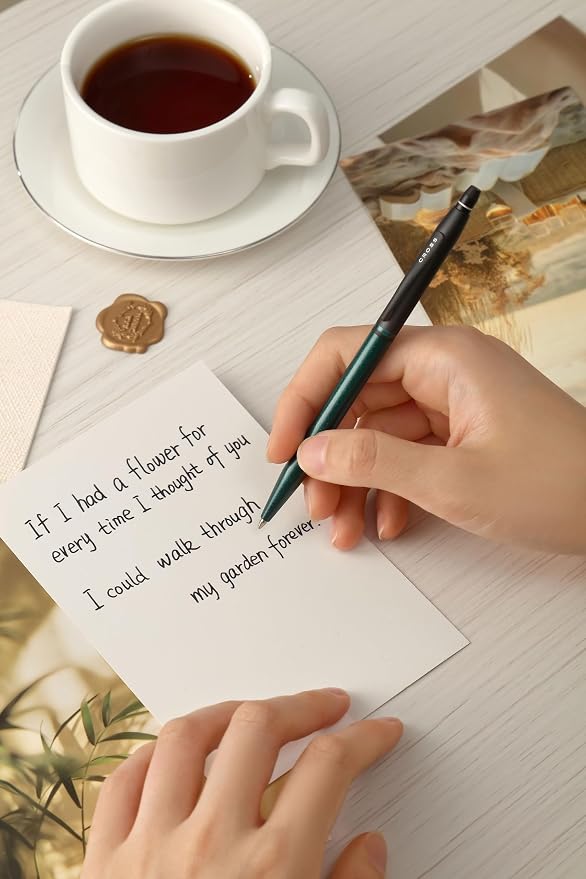 CROSS
If I had a flower for
every time I thought of you
I could walk through
my garden forever.